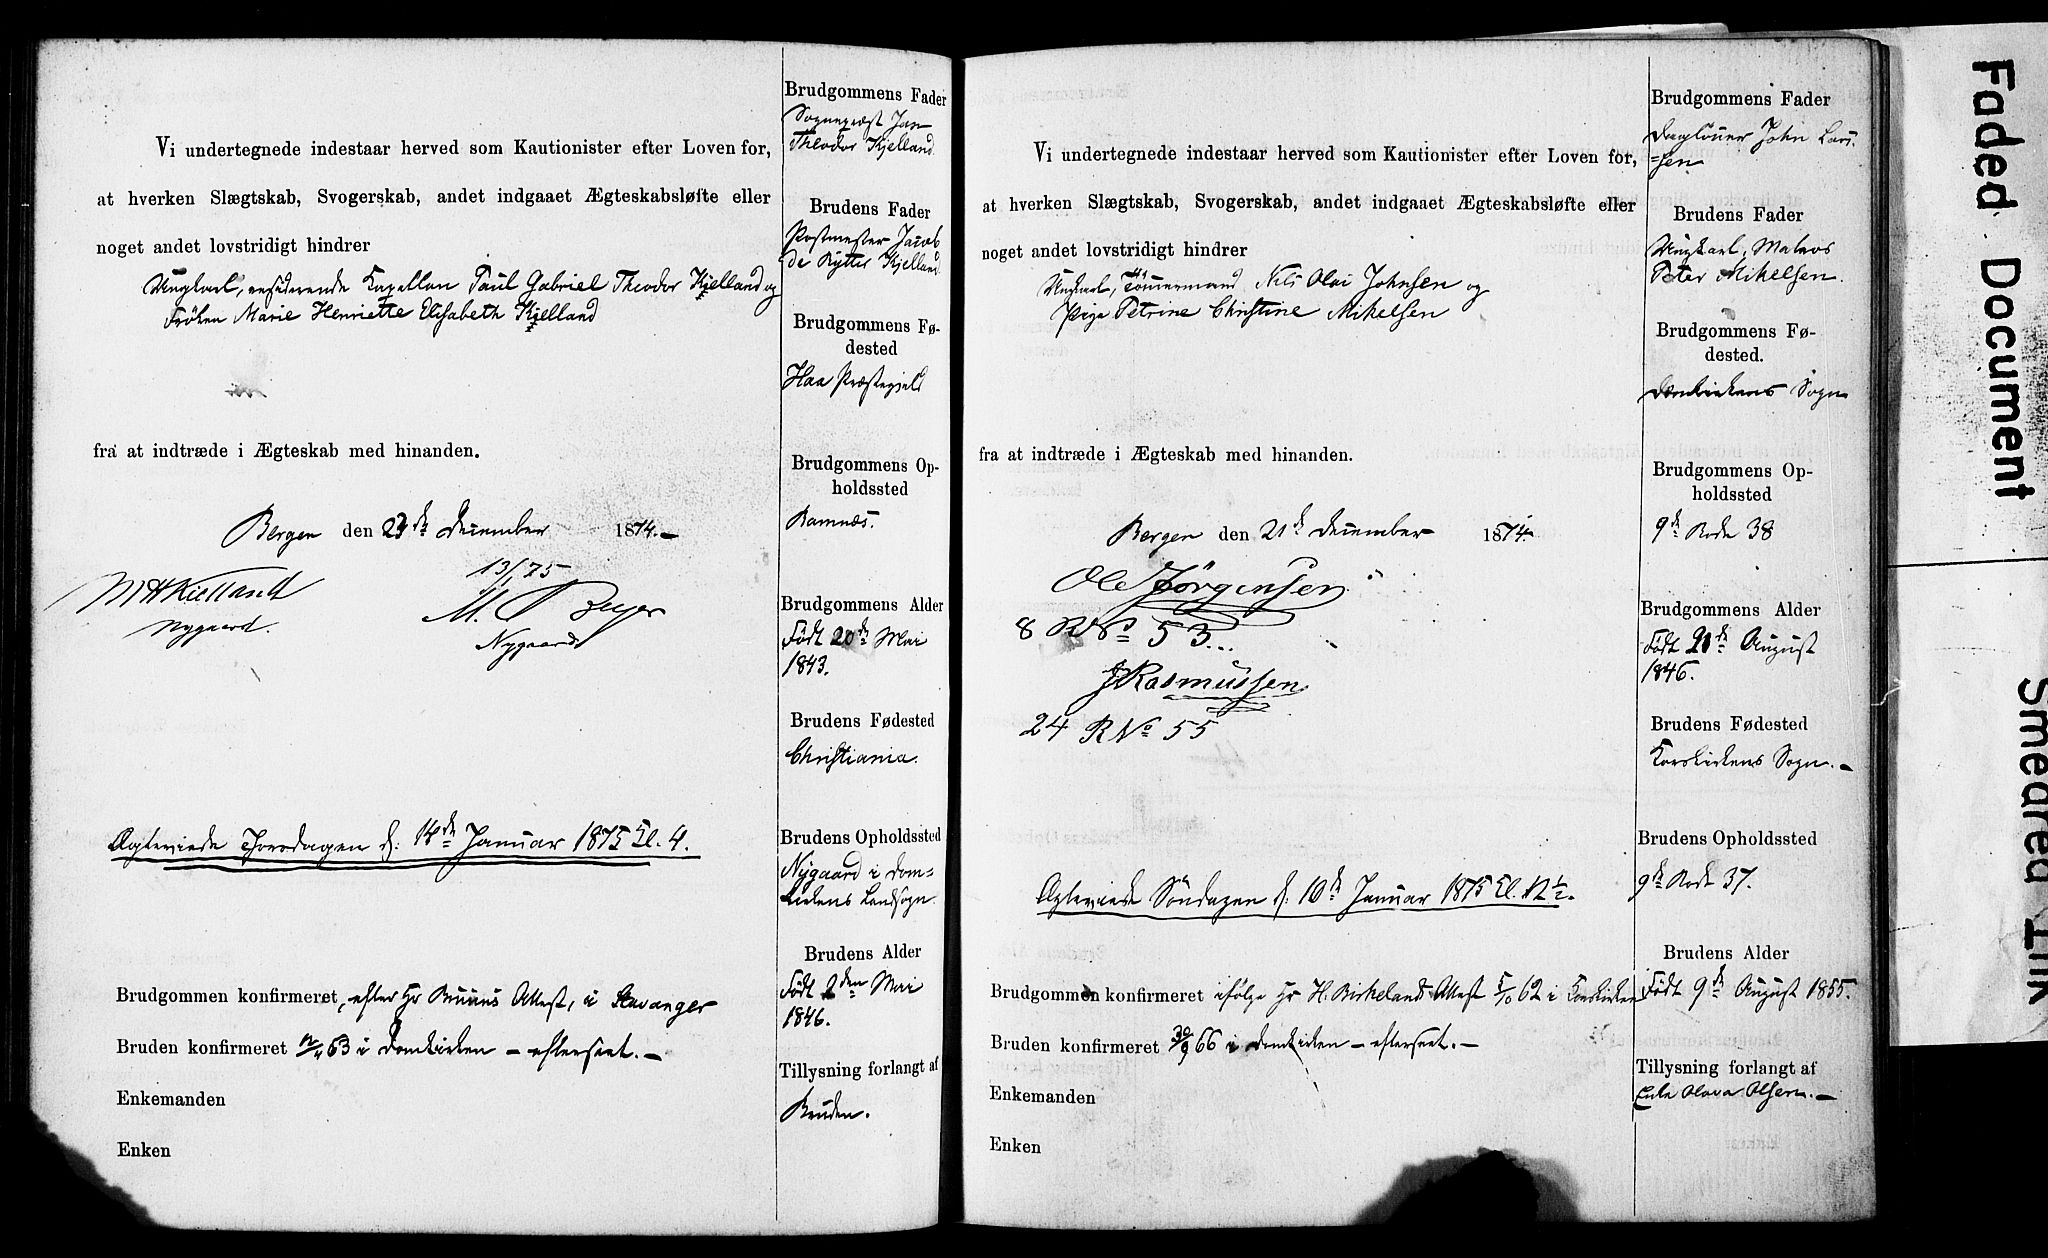 Vi undertegnede indestaar herved som Kautionister efter Loven for,
at hverken Slægtskab, Svogerskab, andet indgaaet Ægteskabsløfte eller
noget andet lovstridigt hindrer
Ungkarl, residerende Kapellan Paul Gabriel Theodor Kjelland og
Frøken Marie Henriette Elisabeth Kjelland
fra at indtræde i Ægteskab med hinanden.
Bergen den 23de December 1874.-
13/1 75
MHKielland
Nygaard.
M. Beyer
Nygaard
Ægteviede Torsdagen d: 14de Januar 1875 Kl. 4.
Brudgommen konfirmeret, efter Hr Attest, i Stavanger
Bruden konfirmeret 63 i Domkirken - efterseet. -
Enkemanden
Enken
Brudgommens Fader
Sogneprest Jan
Theodor Kjelland.
Brudens Fader
Postmester Jacob
de Rytter Kjelland.
Brudgommens Fø-
dested
Haa Præstegjeld
Brudgommens Op-
holdssted
Ramnæs.
Brudgommens Alder
Født 20de Mai
1843.
Brudens Fødested
Christiania.
Brudens Opholdssted
Nygaard i Dom=
kirkens Landsogn.
Brudens Alder
Født 2den Mai
1846.
Tillysning forlangt af
Bruden.
Vi undertegnede indestaar herved som Kautionister efter Loven for,
at hverken Slægtskab, Svogerskab, andet indgaaet Ægteskabsløfte eller
noget andet lovstridigt hindrer
Ungkarl, Tömmermand Nils Olai Johnsen og
Pige Petrine Christine Mikelsen
fra at indtræde i Ægteskab med hinanden.
Bergen den 21de December 1874.
Ole Jörgensen
8 R No 53...
J Rasmussen
24 R No 55
Ægteviede Söndagen d: 10de Januar 1875 Kl. 12½.
Brudgommen konfirmeret ifölge Hr H. Birkelands Attest 5/10 62 i Korskirken
Bruden konfirmeret 30/9 66 i Domkirken - efterseet. -
Enkemanden
Enken
Brudgommens Fader
Daglönner John Lars-
=sen
Brudens Fader
Ungkarl, Mateos
Peter Mikelsen.
Brudgommens Fø-
dested.
Domkirkens Sogn
Brudgommens Op-
holdssted
9de Rode 38
Brudgommens Alder
Født 20de August
1846.
Brudens Fødested
Korskirkens Sogn. -
Brudens Opholdssted
9de Rode 37.
Brudens Alder
Født 9de August 1855.
Tillysning forlangt af
Enke Olava Olsen. -
Faded Document
Smeared Ink